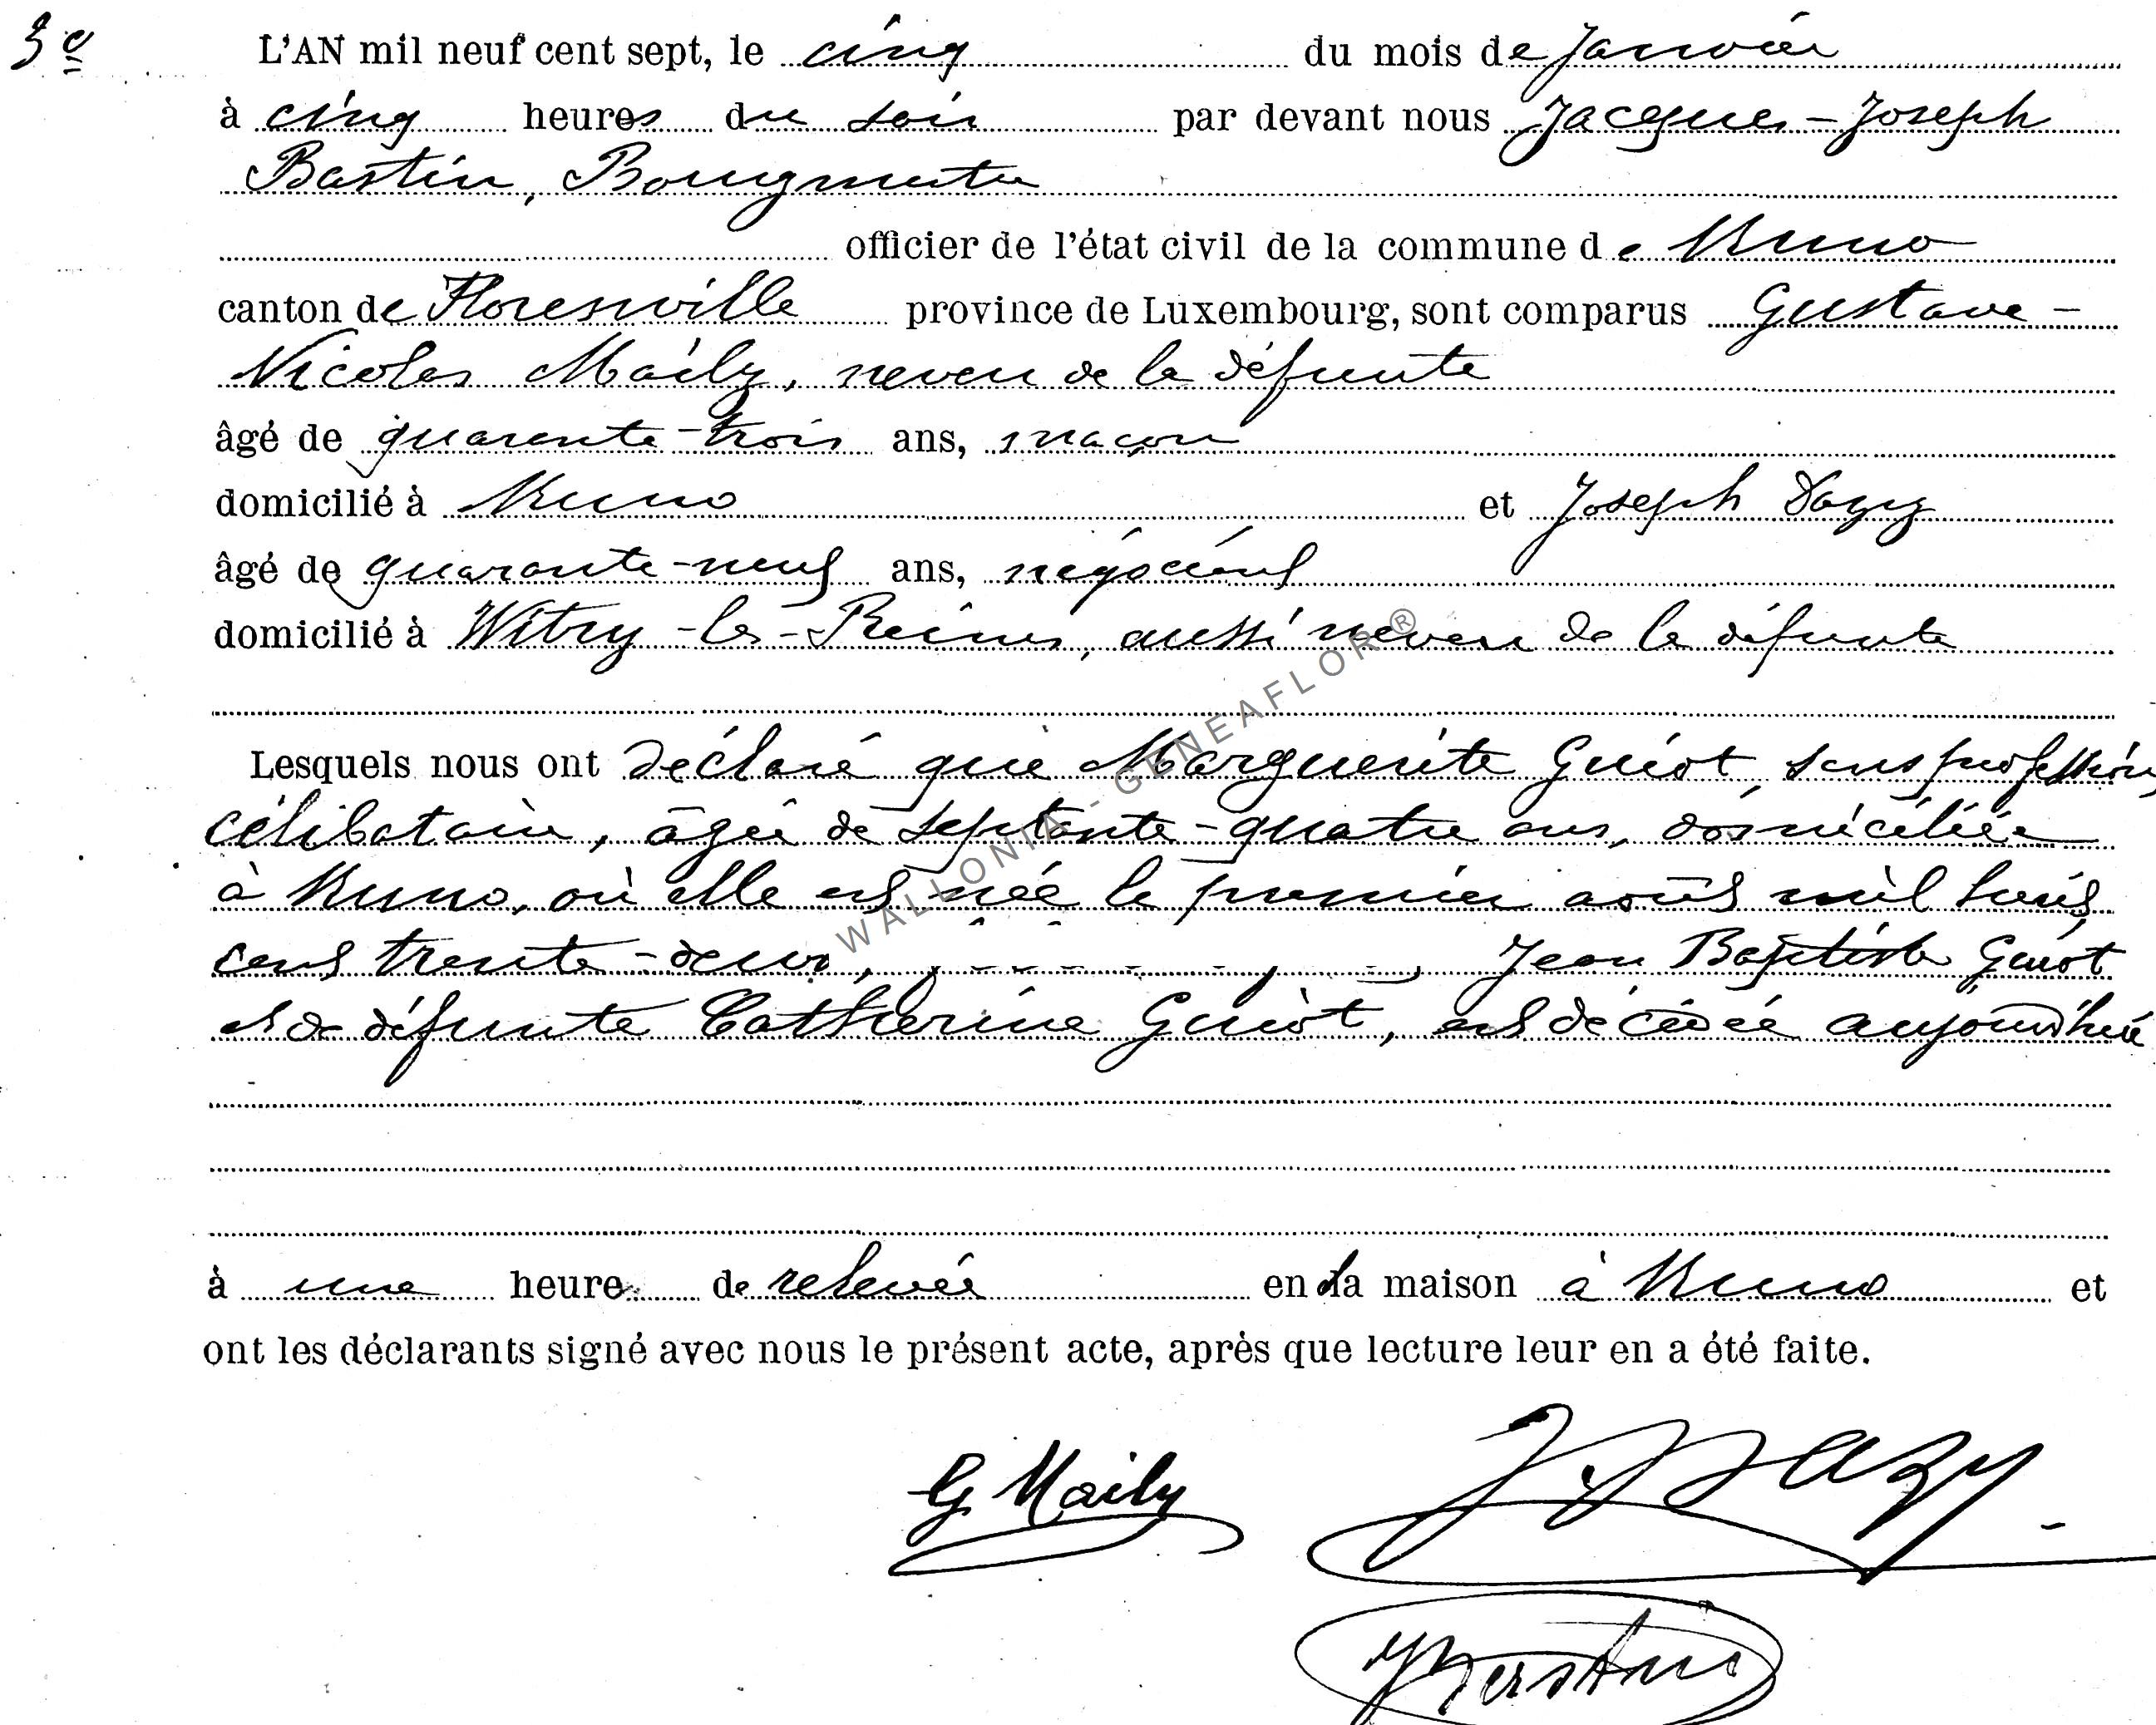 3e
L'AN mil neuf cent sept, le cinq du mois de Janvier
à cinq heures du soir par devant nous Jacques-Joseph
Bastin, Bourgmestre
officier de l'état civil de la commune de Muno
canton de Florenville province de Luxembourg, sont comparus Gustave-
Nicolas Maily, neveu de la défunte
âgé de quarante-trois ans, maçon
domicilié à Muno et Joseph Dazy
âgé de quarante-neuf ans, négociant
domicilié à Witry-les-Reims, aussi neveu de la défunte
Lesquels nous ont déclaré que Marguerite Guiot, sans profession,
célibataire, âgée de septante-quatre ans, domiciliée
à Muno, où elle est née le premier août mil huit
cent trente-deux, Jean Baptiste Guiot
et de défunte Catherine Guiot, est décédée aujourd'hui
à une heure de relevée en la maison à Muno et
ont les déclarants signé avec nous le présent acte, après que lecture leur en a été faite.
G Maily
J Dazy
JBastin
WALLONIA - GENEAFLOR ®